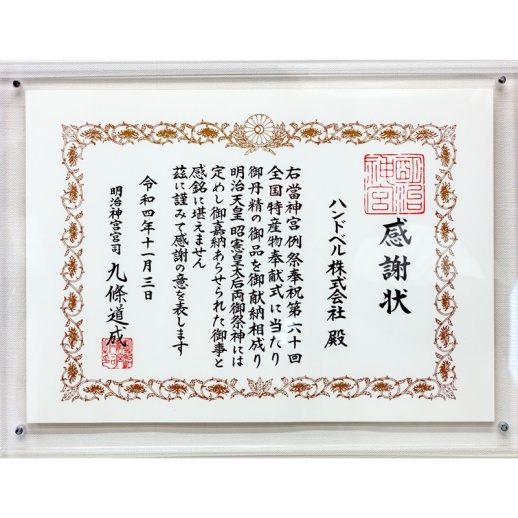 明治
神宮
感謝状
ハンドベル株式会社 殿
右當神宮例祭奉祝第六十回
全国特産物奉献式に当たり
御丹精の御品を御献納相成り
明治天皇 昭憲皇太后両御祭神には
定めし御嘉納あらせられた御事と
感銘に堪えません
茲に謹みて感謝の意を表します
令和四年十一月三日
明治神宮宮司 九條道成